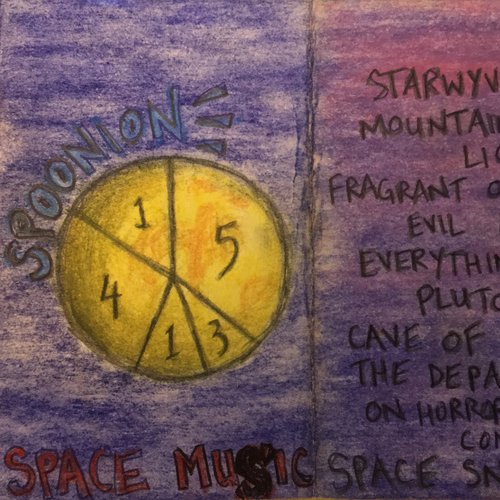 SPOONION
1
5
4
1
3
SPACE MUSIC
STARWYV
MOUNTAIN
LIG
FRAGRANT
EVIL
EVERYTHIN
PLUTO
CAVE OF
THE DEPA
ON HORRO
CON
SPACE SN